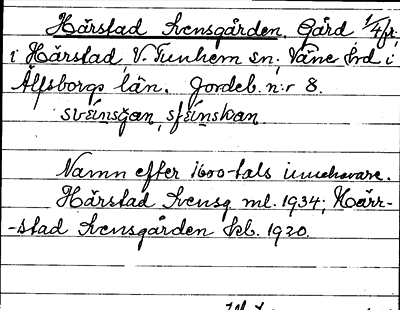 Härstad Svensgården. Gård 1/4 fr.
i Härstad, V. Tunhem sn; Väne hrd i
Älfsborgs län. Jordeb. n:r 8.
svẹinsgan, sfẹinskan.
Namn efter 1600-tals innehavare.
Härstad Svensg. ml. 1934; Härr-
-stad Svensgården kb. 1920.